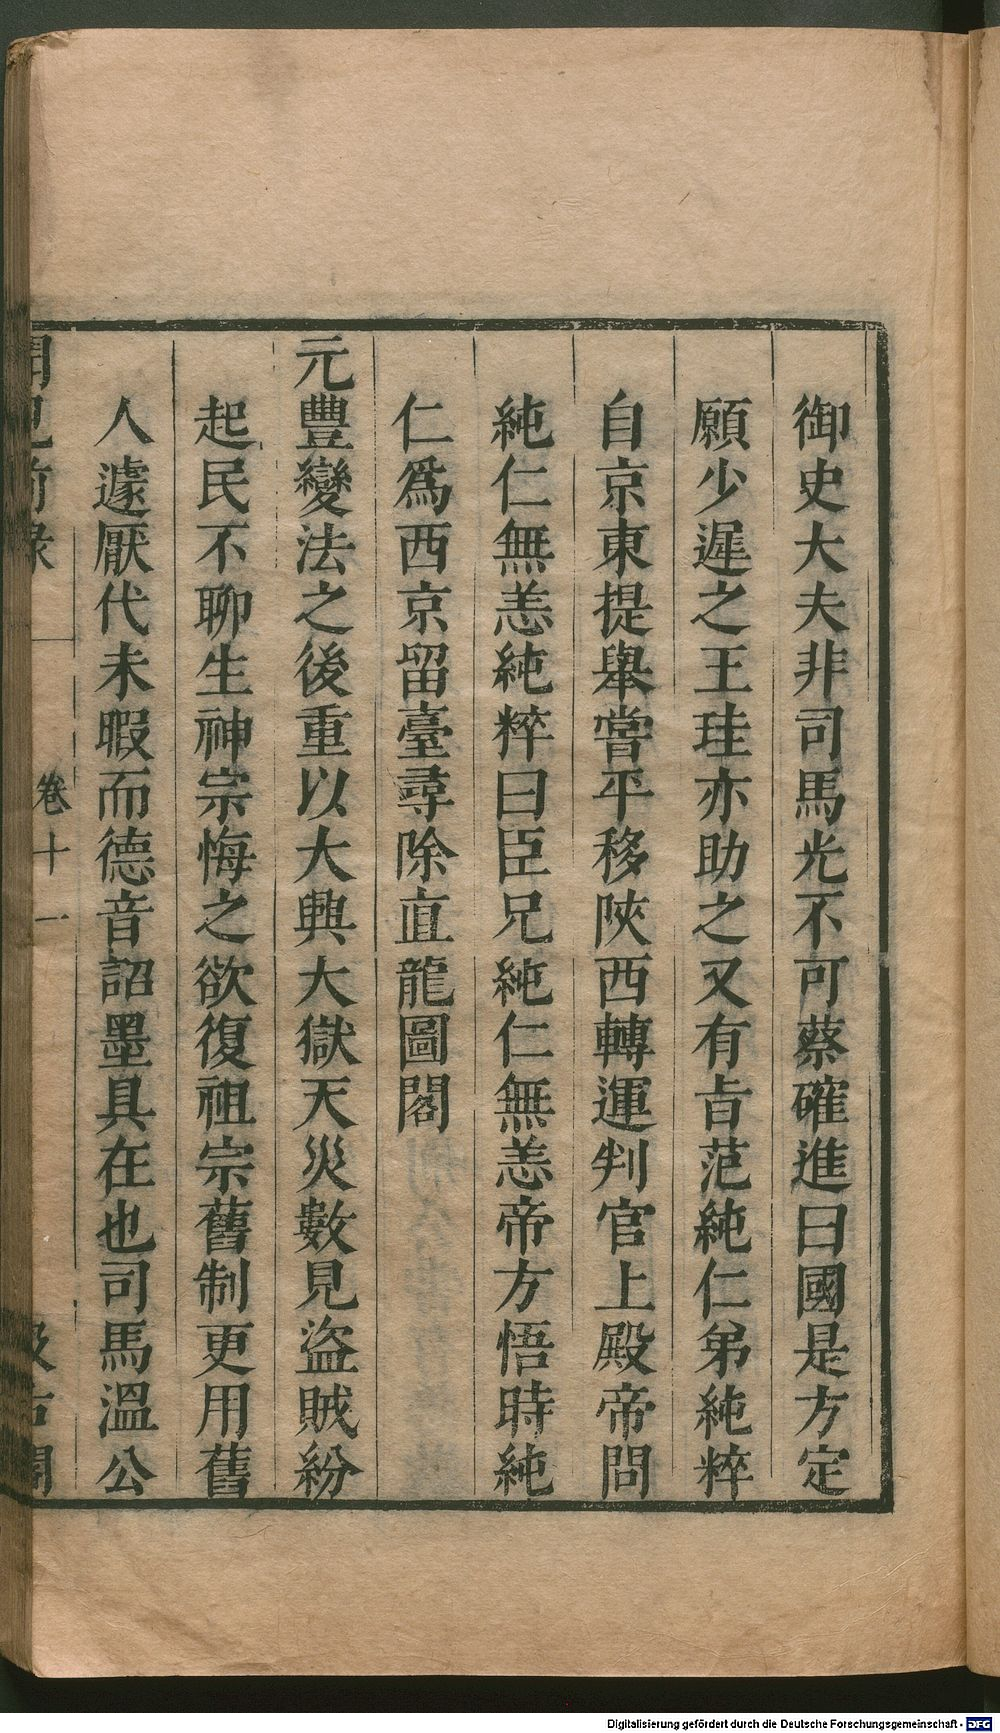 御史大夫非司馬光不可蔡確進曰國是方定
願少遲之王珪亦助之又有旨范純仁弟純粹
自京東提舉嘗平移陝西轉運判官上殿帝問
純仁無恙純粹曰臣兄純仁無恙帝方悟時純
仁爲西京留臺尋除直龍圖閣
元豐變法之後重以大興大獄天災數見盜賊紛
起民不聊生神宗悔之欲復祖宗舊制更用舊
人遽厭代未暇而德音詔墨具在也司馬溫公
卷十一
Digitalisierung gefördert durch die Deutsche Forschungsgemeinschaft - DFG